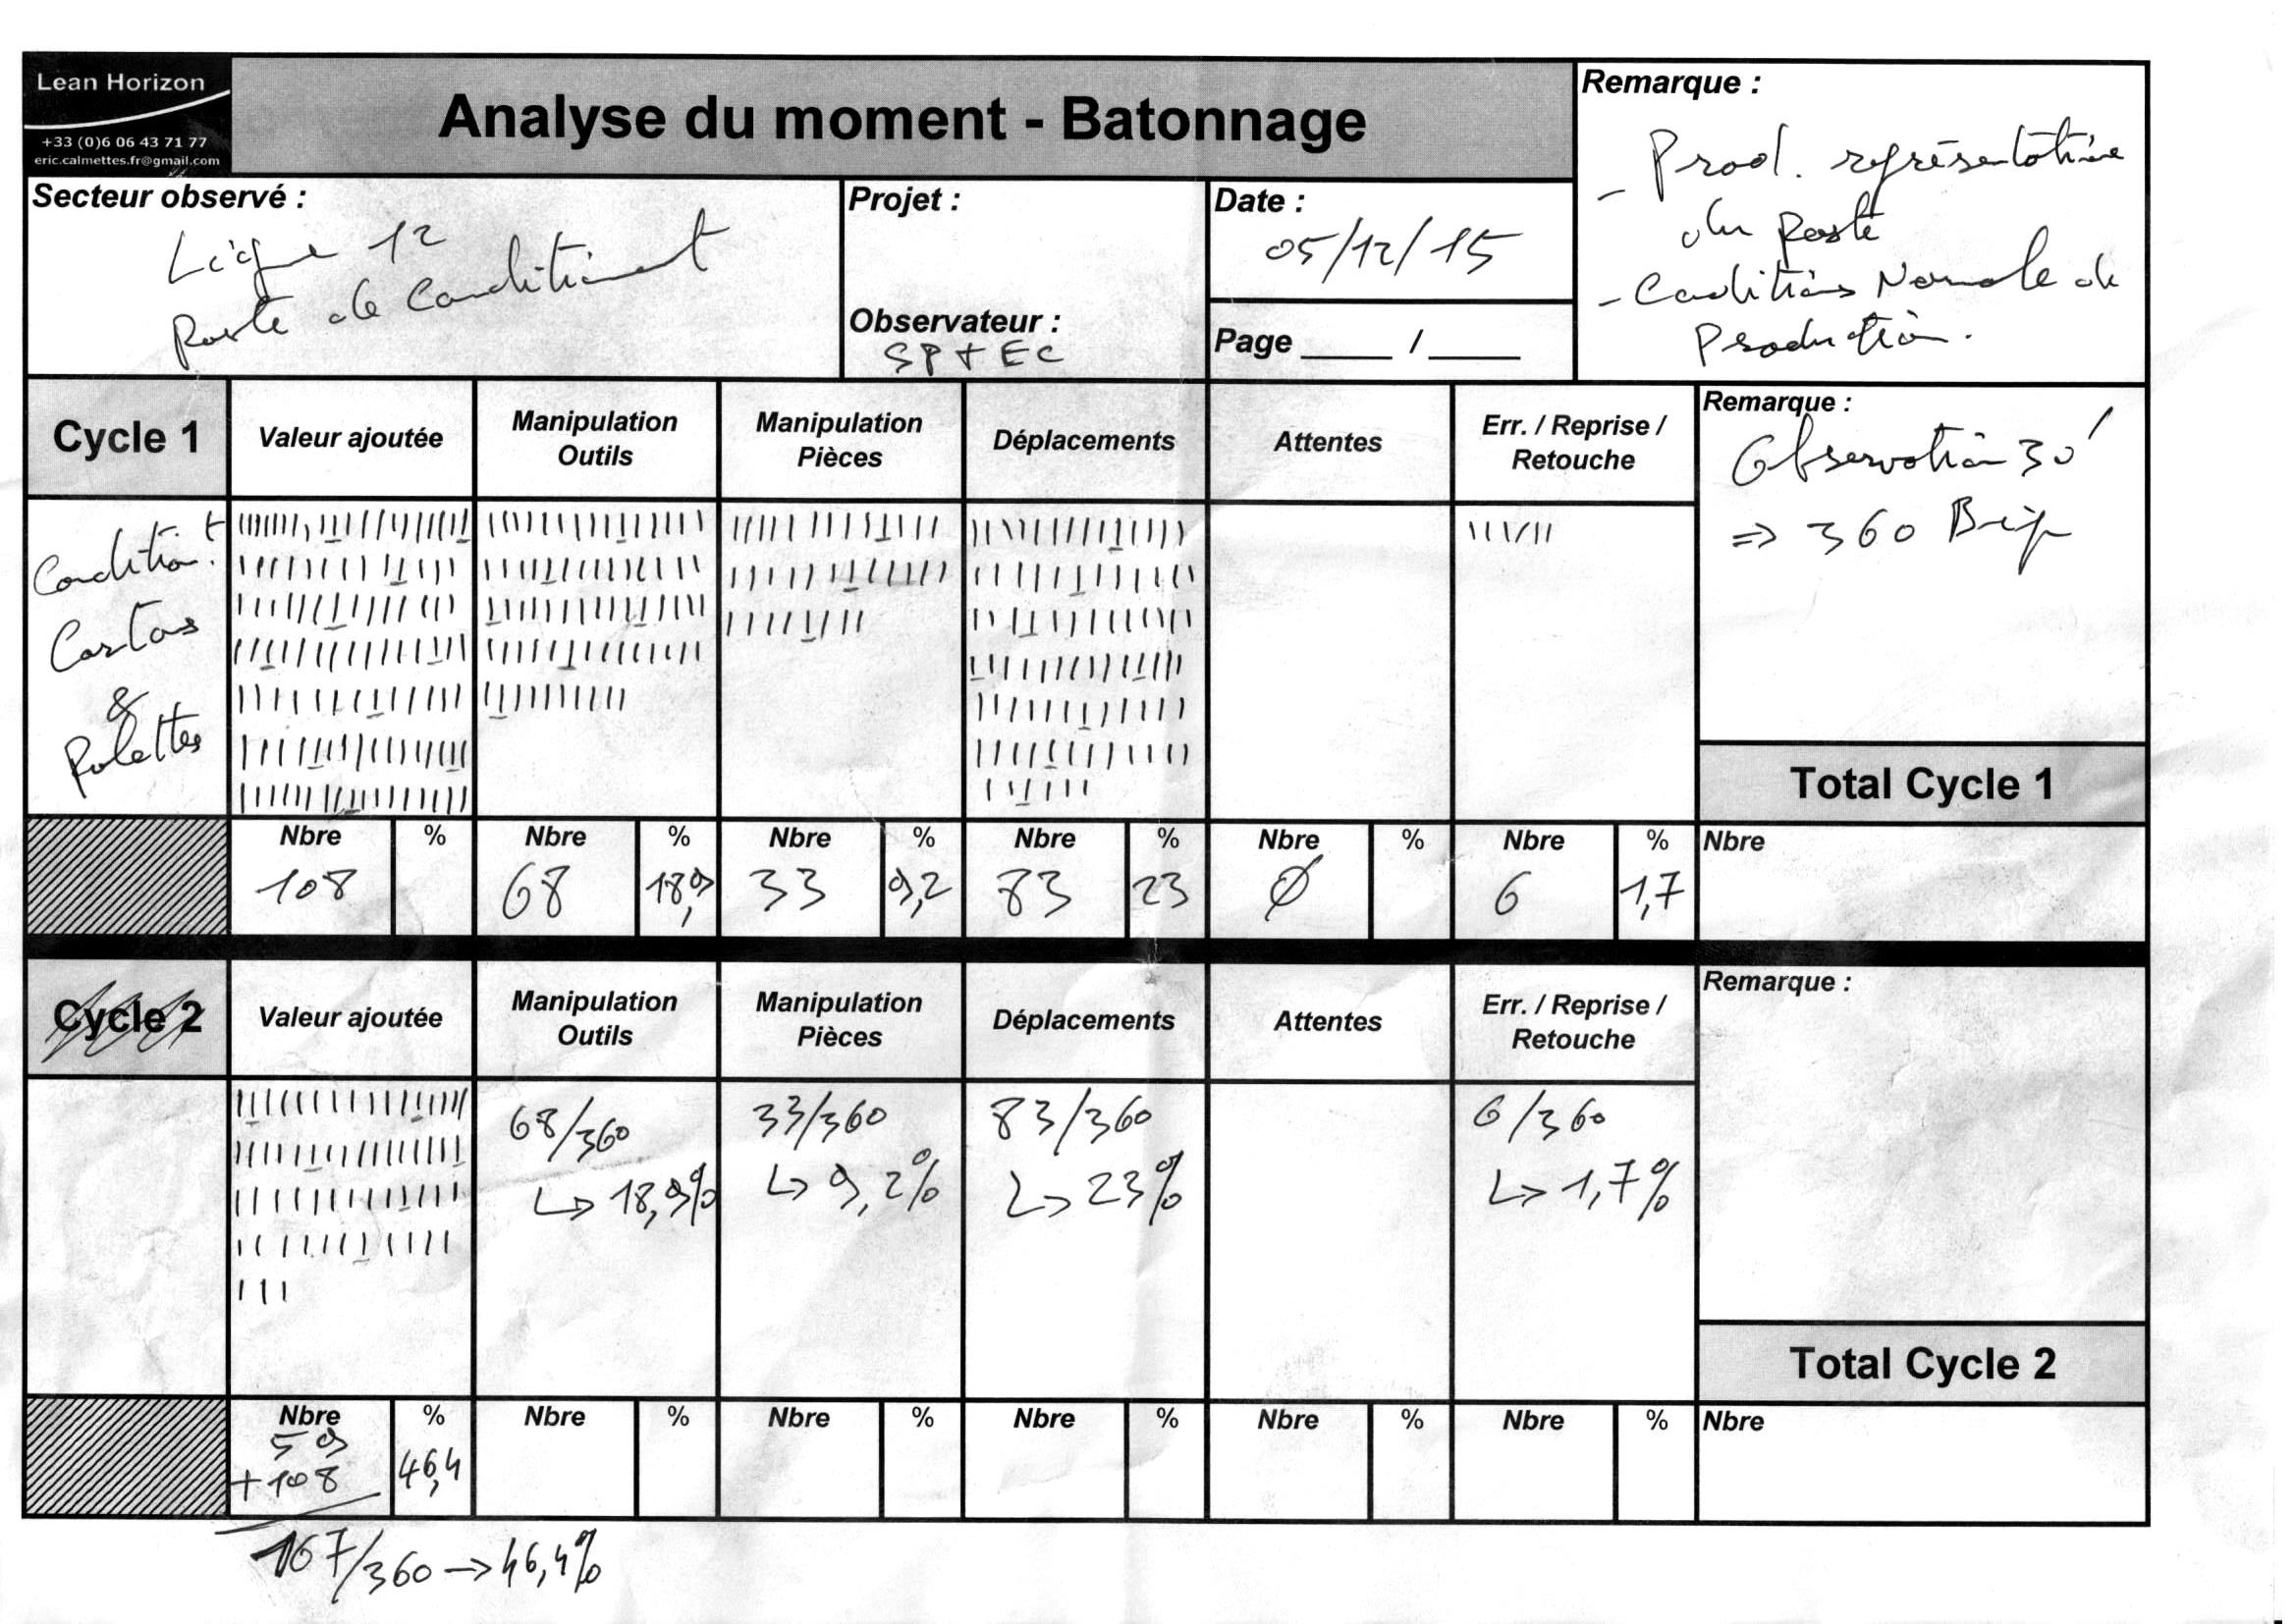 Lean Horizon
+33 (0)6 06 43 71 77
eric.calmettes.fr@gmail.com
Analyse du moment - Batonnage
Remarque :
- Prod. représentative
du poste
- Conditions Normale de
Production.
Secteur observé :
Ligne 12
Poste de Conditiment
Projet :
Observateur :
SP + EC
Date :
05/12/15
Page _____ / _____
Cycle 1
Valeur ajoutée
Manipulation
Outils
Manipulation
Pièces
Déplacements
Attentes
Err. / Reprise /
Retouche
Remarque :
Observation 30'
⇒ 360 Bip
Condition.t
Cartons
&
Palettes
Total Cycle 1
Nbre % Nbre % Nbre % Nbre % Nbre % Nbre % Nbre
108 68 18,9 33 9,2 83 23 Ø 6 1,7
Cycle 2
Valeur ajoutée
Manipulation
Outils
Manipulation
Pièces
Déplacements
Attentes
Err. / Reprise /
Retouche
Remarque :
68/360 33/360 83/360 6/360
↳ 18,9% ↳ 9,2% ↳ 23% ↳ 1,7%
Total Cycle 2
Nbre % Nbre % Nbre % Nbre % Nbre % Nbre % Nbre
59
+108 46,4
167/360 → 46,4%